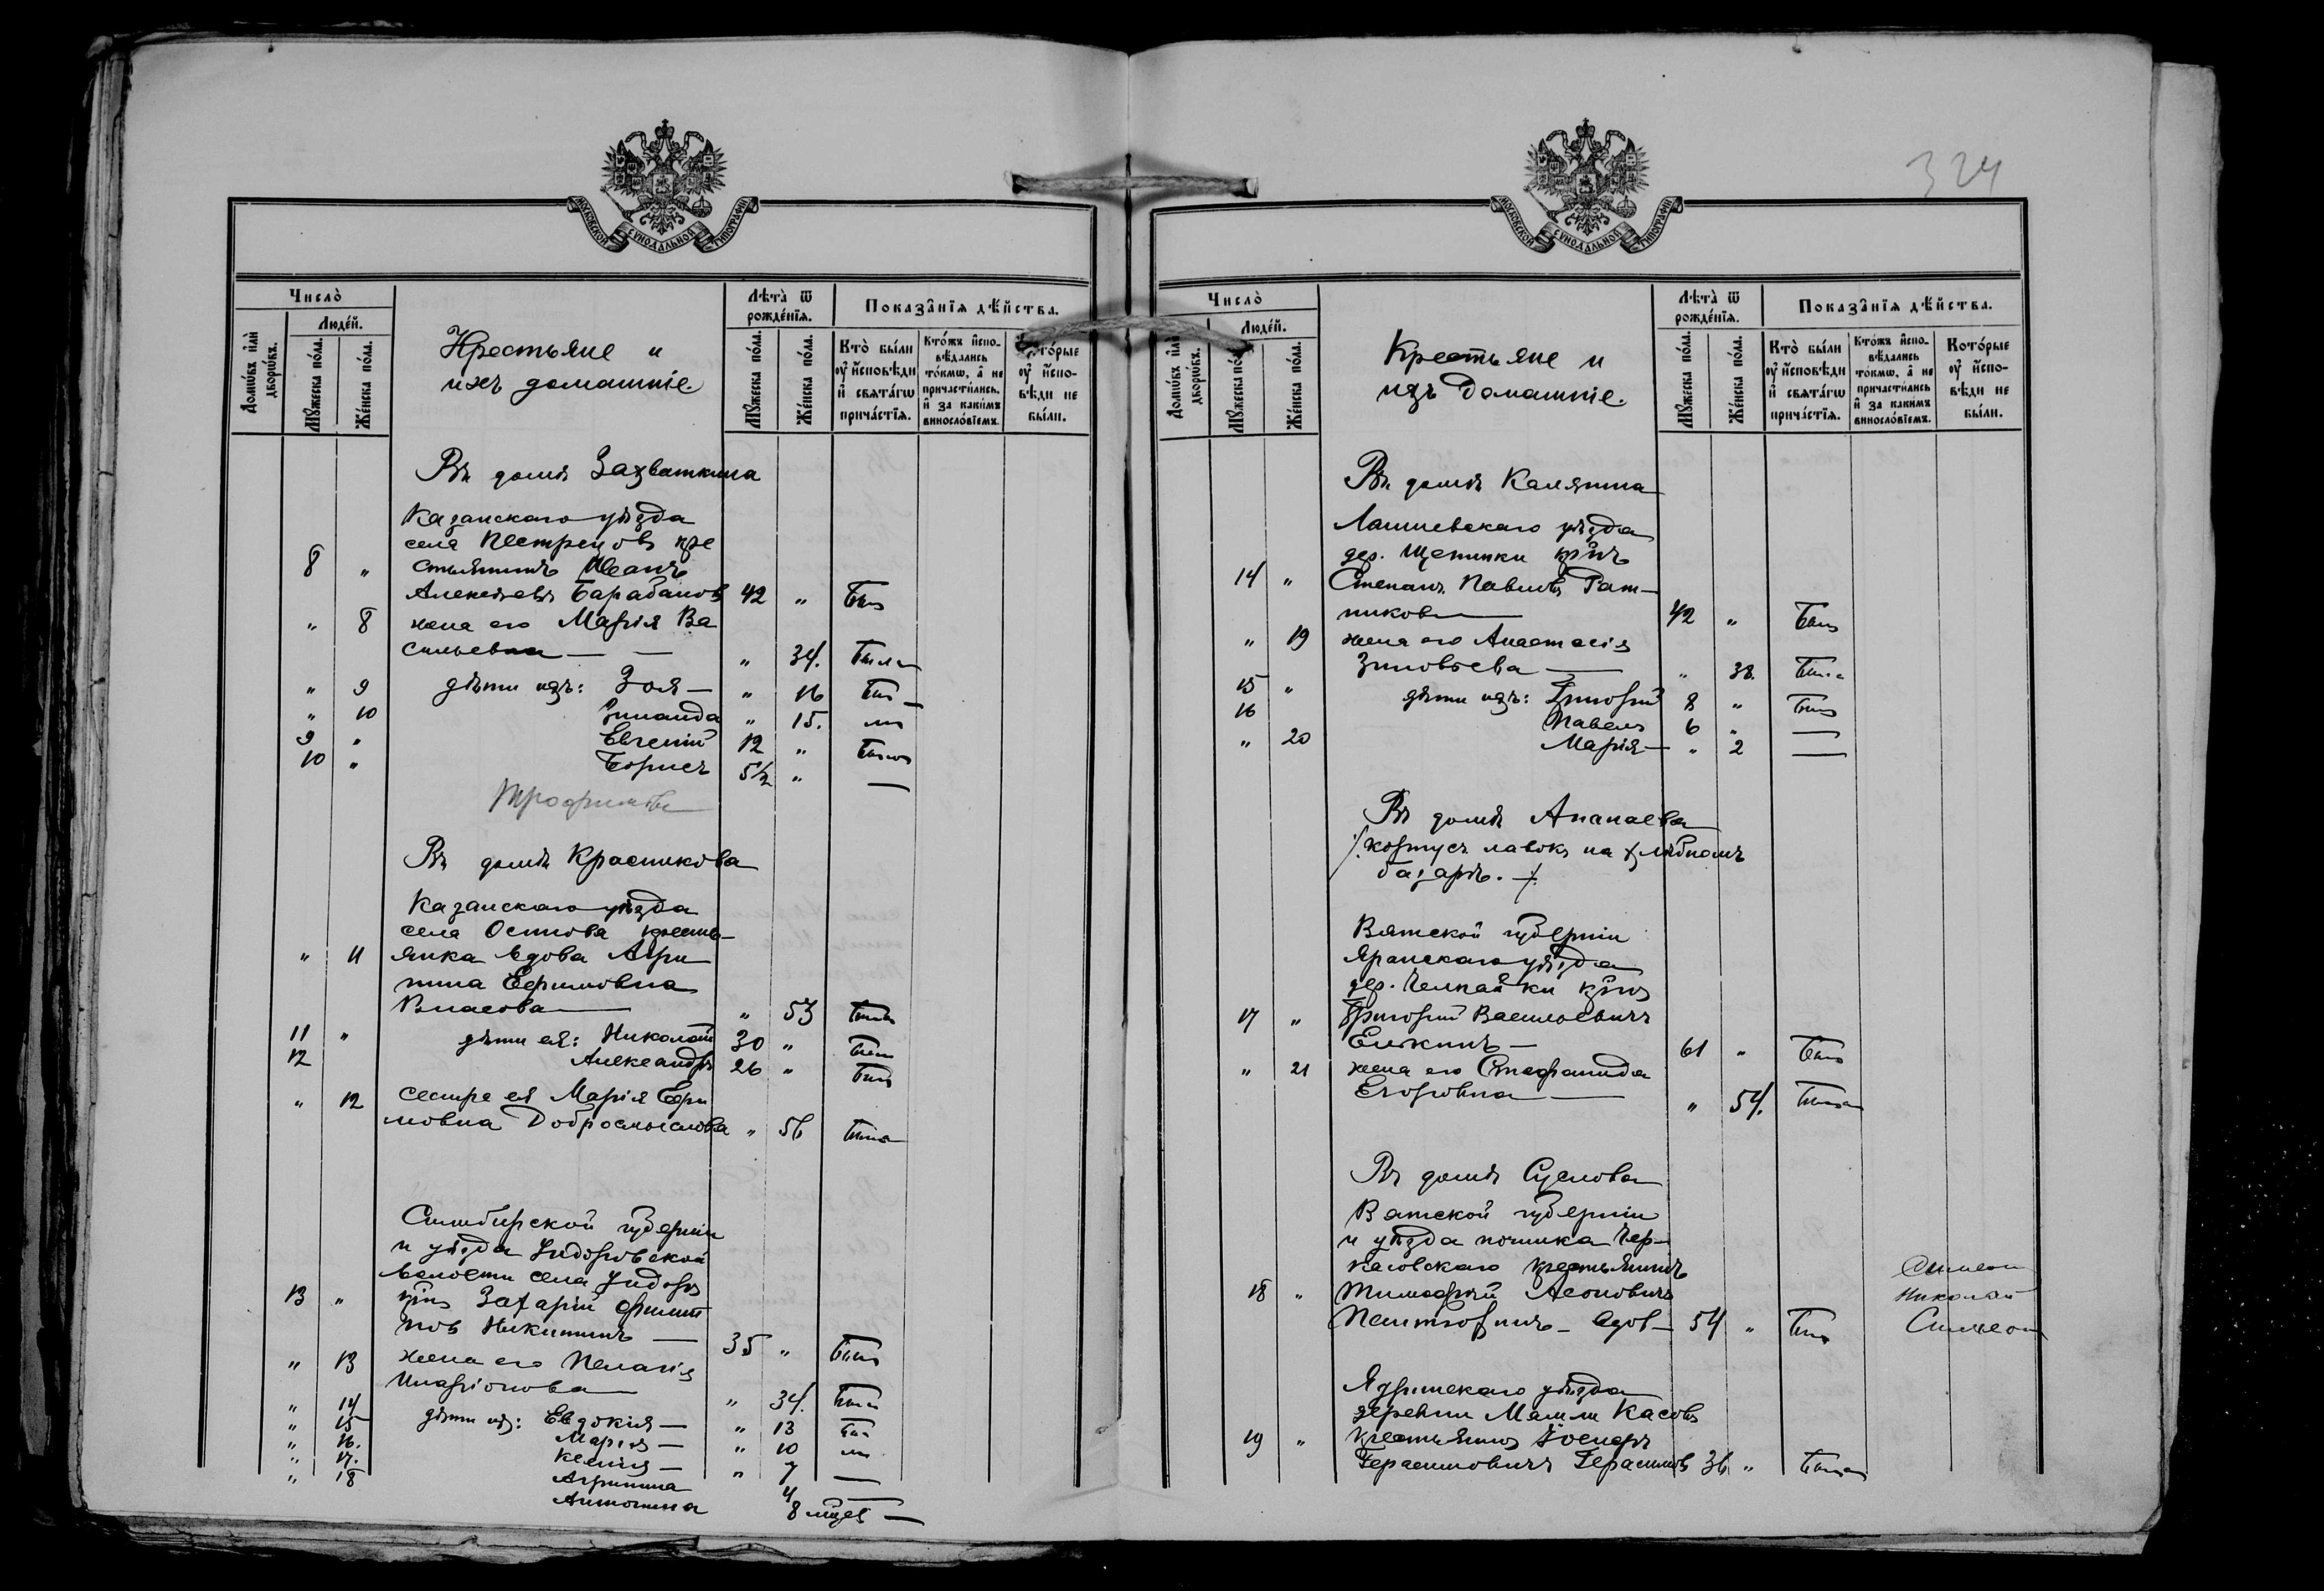 МОСКОВСКОЙ СУНОДАЛЬНОЙ ТИПОГРАФІИ
Число̀
Людéй.
Домѡ́въ и҆лѝ дворѡ́въ.
Мꙋ́жеска по́ла.
Же́нска по́ла.
Крестьяне и
ихъ домашніе.
Лѣта̀ ѿ рождéнїѧ.
Мꙋ́жеска по́ла.
Же́нска по́ла.
Показа̑нїѧ дѣ́йства.
Кто̀ бы́ли ᲂу҆ и҆сповѣ́ди и҆ свѧта́гѡ прича́стїѧ.
Кто́жъ и҆спо-вѣ́дались то́кмѡ, а҆ не причасти́лись, и҆ за каки́мъ винослóвїемъ.
Кото́рые ᲂу҆ и҆спо-вѣ́ди не бы́ли.
Въ домѣ Захваткина
Казанскаго уѣзда
села Пестрецовъ кре
8 " стьянинъ Иванъ
Алексѣевъ Барабановъ 42 " Былъ
" 8 жена его Марія Ва
сильевна — — " 34. Была
" 9 дѣти ихъ: Зоя — " 16 Был
" 10 Зинаида " 15. ли
9 " Евгеній 12 " Былъ
10 " Борисъ 5½ " —
Трофимовы
Въ домѣ Красникова
Казанскаго уѣзда
села кресть-
" 11 янка вдова Агри
пина Ефимовна
Власова — " 53 Была
11 " дѣти ея: Николай 30 " Был
12 Александръ 26 " Былъ
" 12 сестра ея Марія Ефи
мовна Добросмыслова " 56 Была
Симбирской губерніи
и уѣзда Ундоровской
волости села Ундоръ
13 " крнъ Захарій Филип
повъ Никитинъ — 35 " Былъ
" 13 жена его Пелагія
Иларіонова — " 34. Была
" 14 дѣти их: Евдокія — " 13 Был
" 15 Марія — " 10 ли
" 16. Ксенія — " 7 —
" 17. Агрипина 4 —
" 18 Антонина 8 мцев —
324
МОСКОВСКОЙ СУНОДАЛЬНОЙ ТИПОГРАФІИ
Число̀
Людéй.
Домѡ́въ и҆лѝ дворѡ́въ.
Мꙋ́жеска по́ла.
Же́нска по́ла.
Крестьяне и
ихъ домашніе.
Лѣта̀ ѿ рождéнїѧ.
Мꙋ́жеска по́ла.
Же́нска по́ла.
Показа̑нїѧ дѣ́йства.
Кто̀ бы́ли ᲂу҆ и҆сповѣ́ди и҆ свѧта́гѡ прича́стїѧ.
Кто́жъ и҆спо-вѣ́дались то́кмѡ, а҆ не причасти́лись и҆ за каки́мъ винослóвїемъ.
Кото́рые ᲂу҆ и҆спо-вѣ́ди не бы́ли.
Въ домѣ Калягина
Лаишевскаго уѣзда
дер. Щепинки крнъ
14 " Степанъ Павловъ Рат-
никовъ — 42 " Былъ
" 19 жена его Анастасія
Зиновьева — " 38. Была
15 " дѣти ихъ: Григорій 8 " Былъ
16 Павелъ 6 " —
" 20 Марія — " 2 —
Въ домѣ Апанаева
/. корпусъ лавокъ на хлѣбномъ
базарѣ. ./.
Вятской губерніи
Яранскаго уѣзда
дер. крнъ
17 " Григорій Васильевичъ
Елькинъ — 61 " Былъ
" 21 жена его Стефанида
Егоровна — " 54. Была
Въ домѣ Суслова
Вятской губерніи
и уѣзда починка Чер-
касовскаго крестьянинъ
18 " Тимофей Леоновичъ
вдов — 54 " Былъ
Симеон
Николай
Симеон
Ядринскаго уѣзда
деревни Касовъ
19 " крестьянинъ
Герасимовичъ Герасимовъ 36 " Был